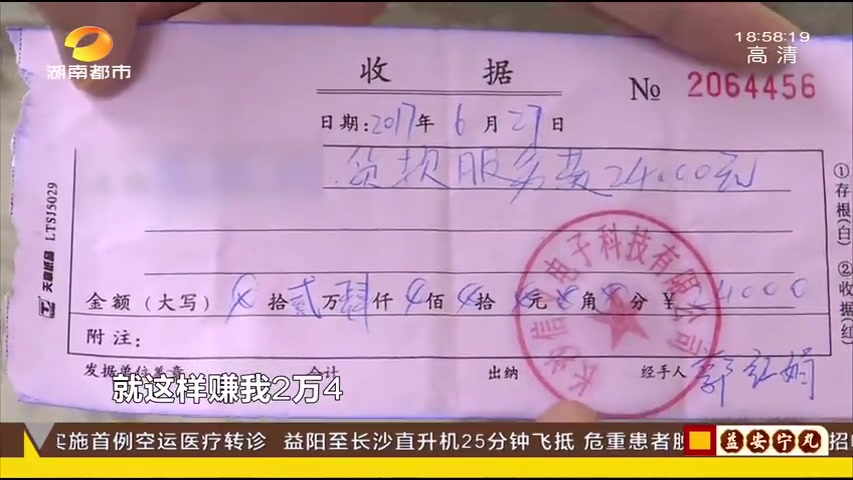 湖南都市
18:58:19
高清
收 据
№ 2064456
日期:2017年 6 月 27 日
贷款服务费24000元
天章纸品 LTSJ5029
①存根(白) ②收据(红)
金额(大写) 拾贰万肆仟 佰 拾 元 角 分 ¥24000
附注:
发据单位盖章 会计 出纳 经手人
长沙信 电子科技有限公司
就这样赚我2万4
实施首例空运医疗转诊 益阳至长沙直升机25分钟飞抵 危重患者脱
益安宁丸